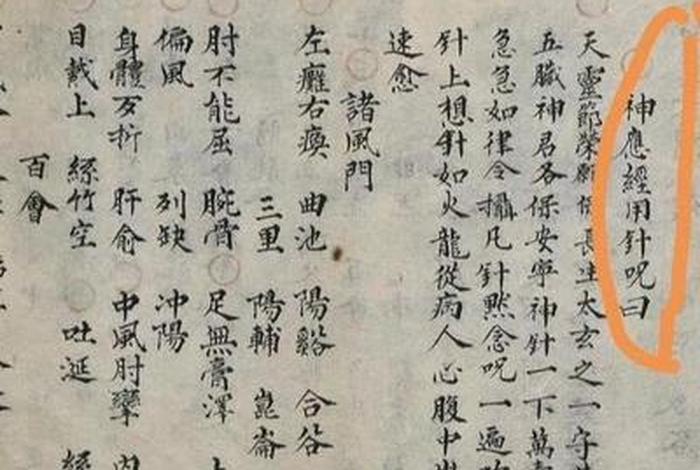 神應經用針呪曰
天靈節榮願保長生太玄之一守
五臟神君各保安寧神針一下萬
急急如律令攝凡針默念呪一遍
針上想針如火龍從病人心腹中出
速愈
諸風門
左癱右瘓 曲池 陽谿 合谷
三里 陽輔 崑崙
肘不能屈 腕骨 足無膏澤 上
偏風 列缺 冲陽
身體反折 肝俞 中風肘攣 內
目戴上 絲竹空 吐涎
百會